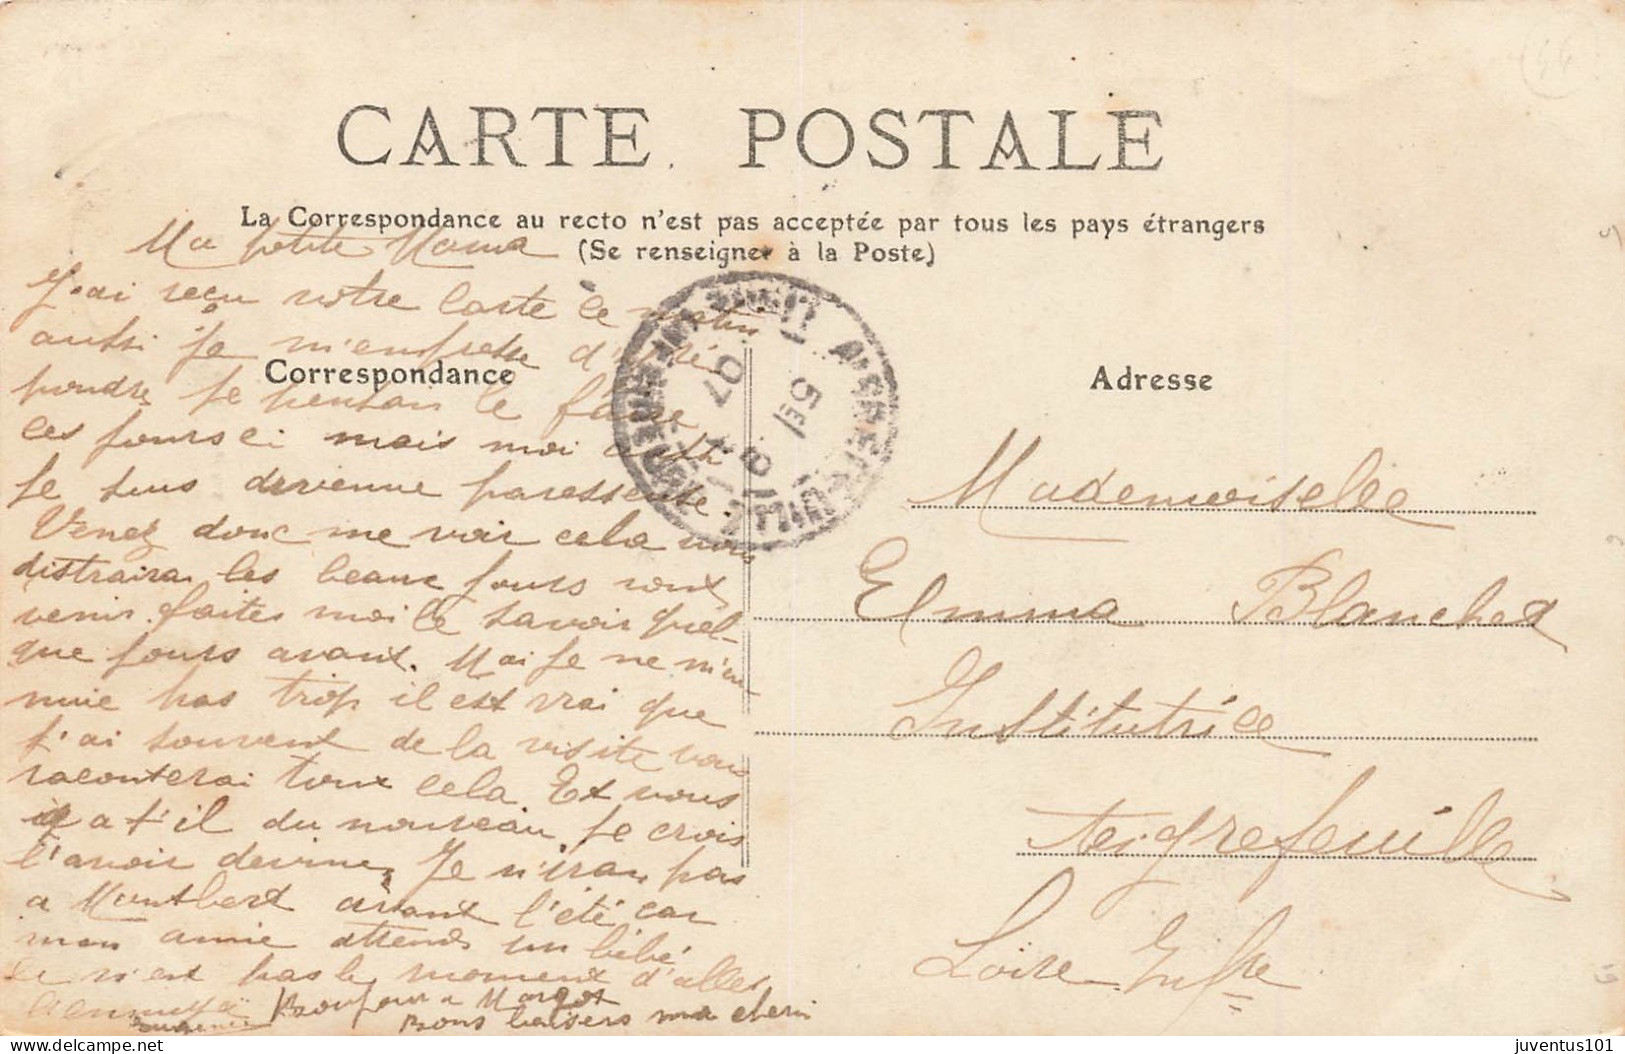 CARTE POSTALE
La Correspondance au recto n'est pas acceptée par tous les pays étrangers
(Se renseigner à la Poste)
Correspondance
Adresse
Ma petite
J'ai reçu votre carte ce matin
aussi je m'empresse d'y ré
pondre je pensais le faire
ces jours ci mais moi aussi
je suis devienne paresseuse.
Venez donc me voir cela vous
distraira les beaux jours vont
venir faites moi le savoir quel-
que jours avant. Moi je ne m'en
nuie pas trop il est vrai que
j'ai souvent de la visite vous
raconterai tout cela Et vous
y a t'il du nouveau je crois
l'avoir deviné. Je n'irai pas
a Montbert avant l'été car
mon amie attends un bébé
ce n'est pas le moment d'aller
Bonjour a Margot
Bons baisers ma cherie
Mademoiselle
Emma Blanchet
Institutrice
Aigrefeuille
Loire Infre
AIGREFEUILLE
07
juventus101